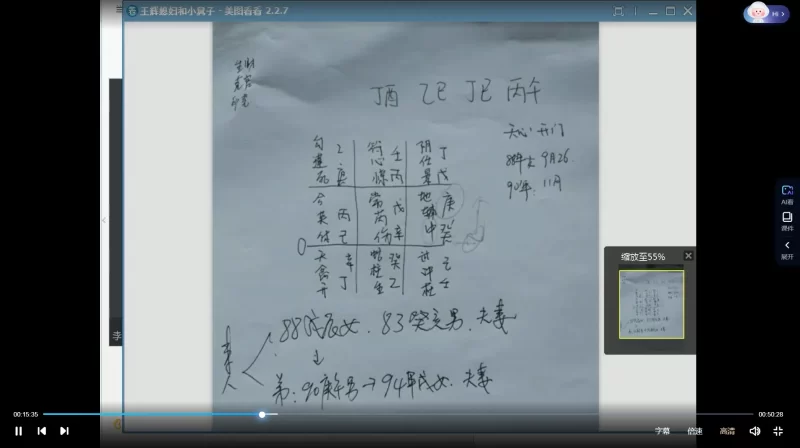 王辉媳妇和小舅子 - 美图看看 2.2.7
Hi
丁酉 乙巳 丁巳 丙午
天心 开门
88年 9月26
90年 11月
乙 庚
符心 壬 丙
阴任景 丁 戊
合英休 丙 己
常芮伤 戊 辛
地辅中 庚 癸
天禽开 辛 丁
蛇柱生 癸 乙
己 壬
88戊辰女. 83癸亥男. 夫妻
弟: 90庚午男→94甲戌女. 夫妻
缩放至55%
AI看
课件
展开
李
00:15:35
00:50:28
字幕 倍速 高清